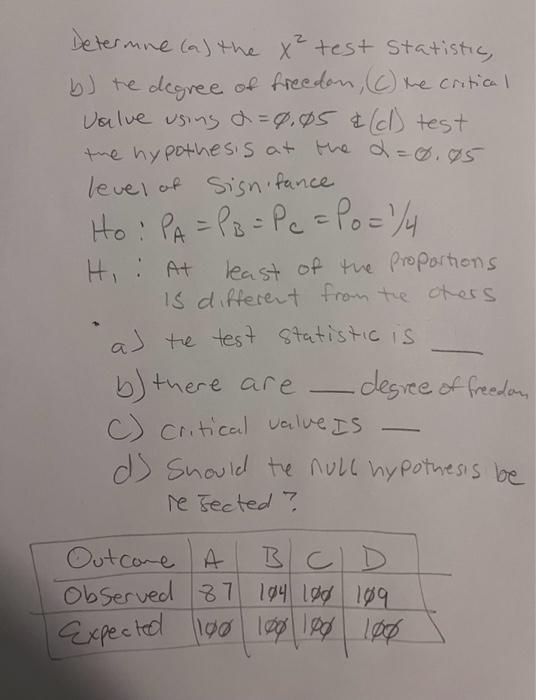 Determine (a) the X² test statistic,
b) te degree of freedom, (c) the critical
Value using α=0.05 & (d) test
the hypothesis at the α=0.05
level of Signifance
Ho: PA = PB = Pc = Po = 1/4
H1: At least of the proportions
is different from the others
a) te test statistic is ___
b) there are ___ degree of freedom
c) critical value Is ___
d) Should te null hypothesis be
rejected?
Outcome A B C D
Observed 87 104 100 109
Expected 100 100 100 100